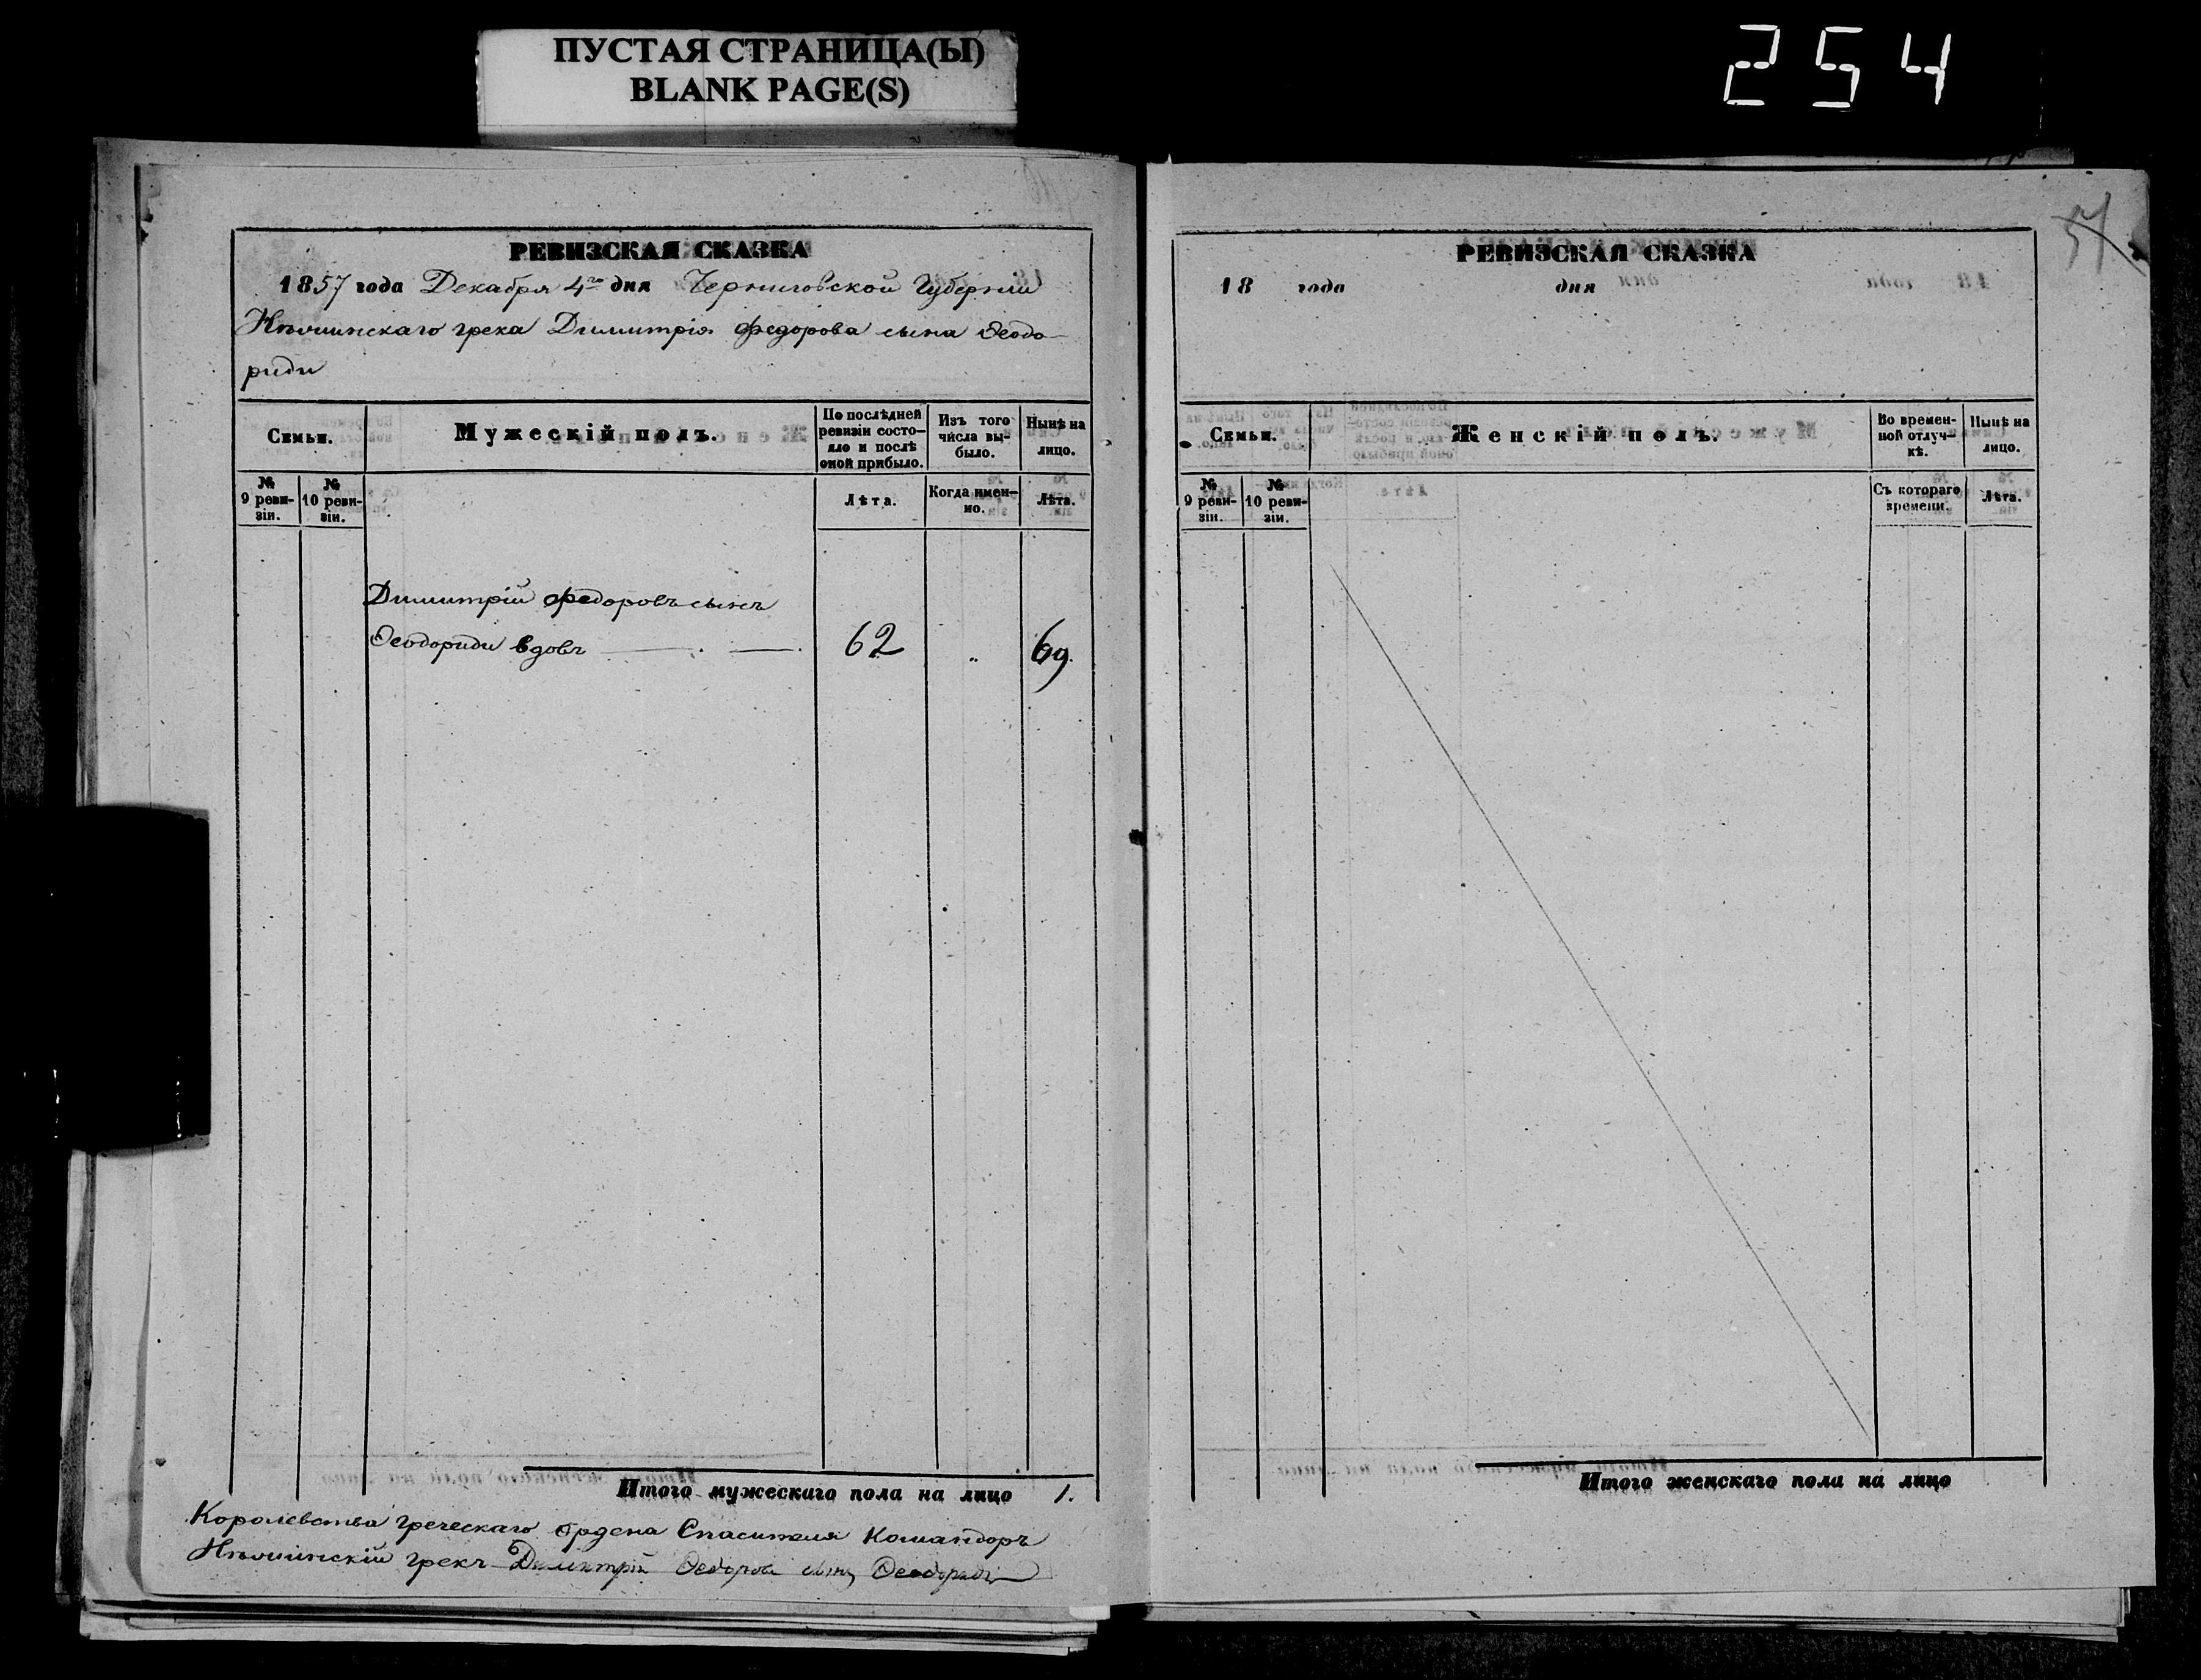 ПУСТАЯ СТРАНИЦА(Ы)
BLANK PAGE(S)
254
РЕВИЗСКАЯ СКАЗКА
1857 года Декабря 4го дня Черниговской Губерніи
Нѣжинскаго грека Димитрія Федорова сына Ѳеодо-
риди
Семьи.
Мужескій полъ.
По послѣдней ревизіи состо-
яло и послѣ оной прибыло.
Изъ того числа вы-
было.
Нынѣ на лицо.
№ 9 реви-
зіи.
№ 10 реви-
зіи.
Лѣта.
Когда имен-
но.
Лѣта.
Димитрій Федоровъ сынъ
Ѳеодориди вдовъ 62 „ 69.
Итого мужескаго пола на лицо 1.
Королевства греческаго ордена Спасителя Командоръ
Нѣжинскій грекъ Димитрій Ѳедоров сынъ Ѳеодориди
57
РЕВИЗСКАЯ СКАЗКА
18 года дня
Семьи.
Женскій полъ.
Во времен-
ной отлуч-
кѣ.
Нынѣ на лицо.
№ 9 реви-
зіи.
№ 10 реви-
зіи.
Съ котораго времени.
Лѣта.
Итого женскаго пола на лицо